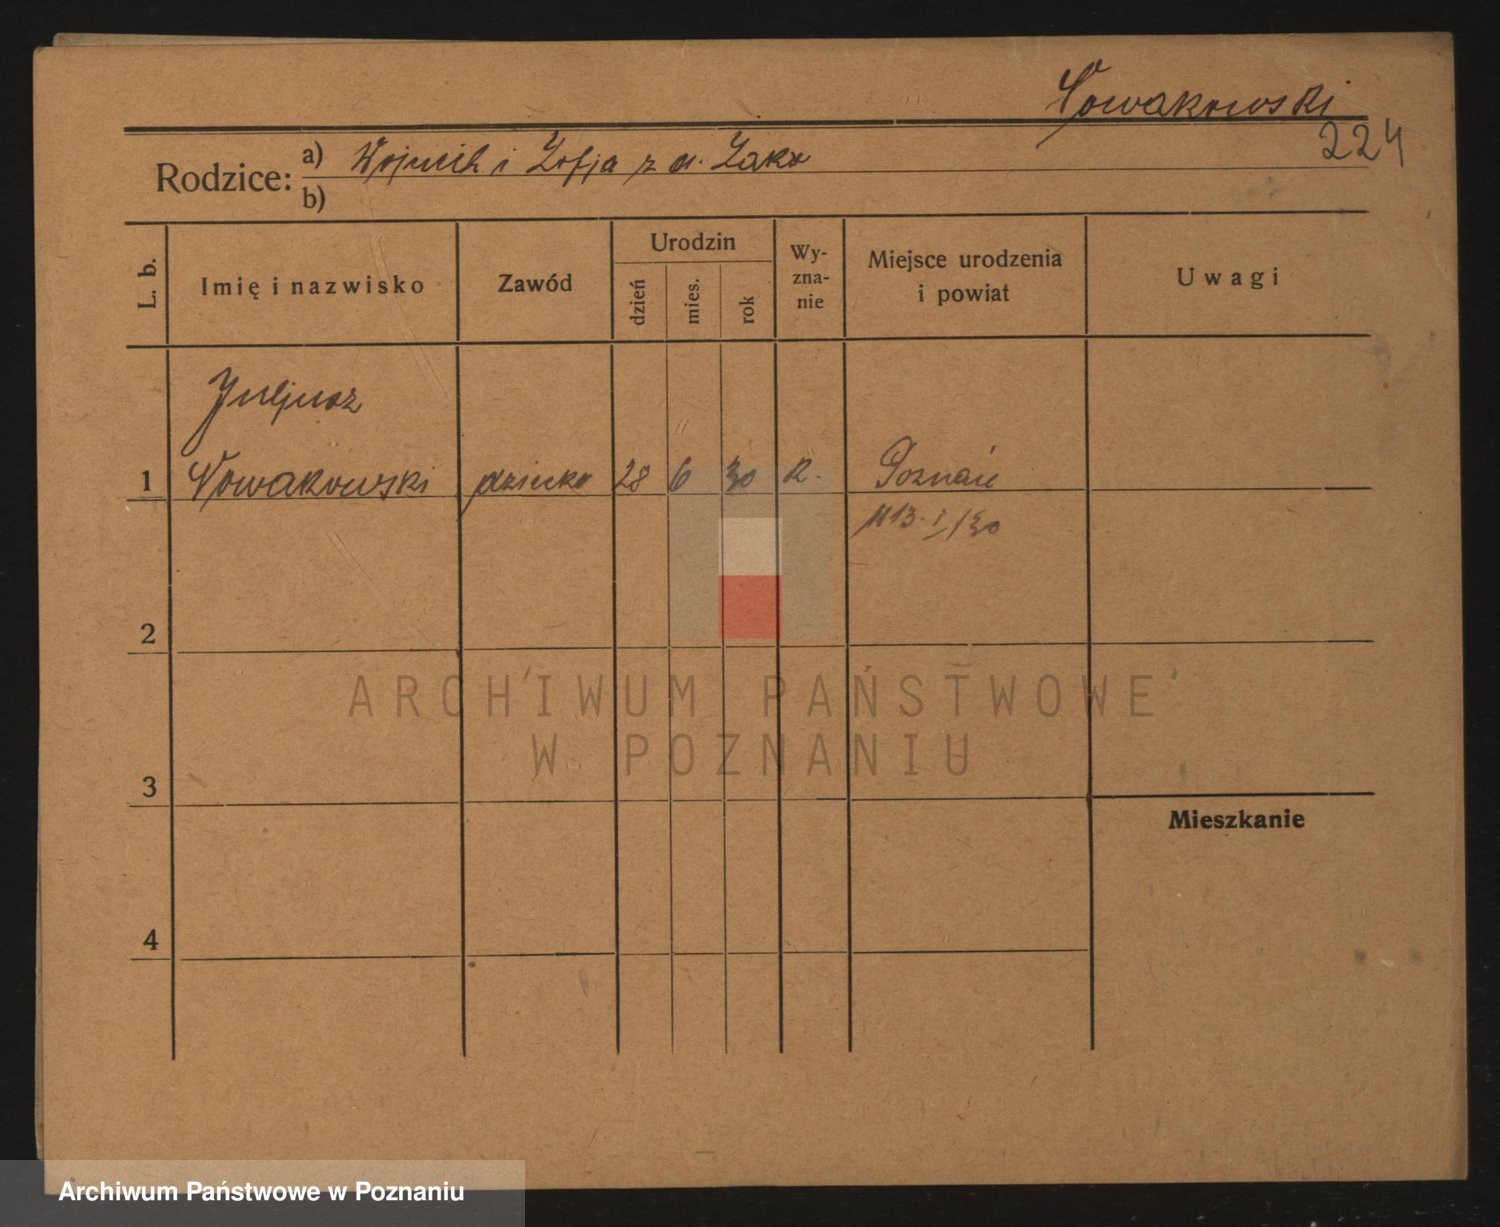 Nowakowski
224
Rodzice: a) Wojciech i Zofja z d. Żaka
b)
L. b.
Imię i nazwisko
Zawód
Urodzin
dzień
mies.
rok
Wy-
zna-
nie
Miejsce urodzenia
i powiat
Uwagi
Juljusz
1 Nowakowski dziecko 28 6 30 R. Poznań
1113. I/30
2
ARCHIWUM PAŃSTWOWE
W POZNANIU
3
Mieszkanie
4
Archiwum Państwowe w Poznaniu